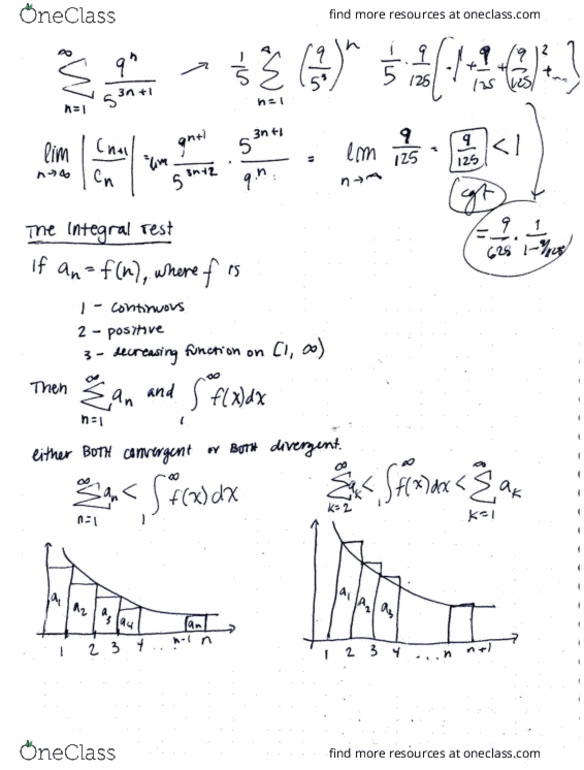 OneClass
find more resources at oneclass.com
∞ Σ n=1 9^n / 5^(3n+1) → 1/5 ∞ Σ n=1 (9/5^3)^n 1/5 · 9/125 (1 + 9/125 + (9/125)^2 + ...)
lim n→∞ |C_n+1 / C_n| = lim 9^(n+1) / 5^(3n+2) · 5^(3n+1) / 9^n = lim n→∞ 9/125 = 9/125 < 1
cgt
= 9/625 · 1/(1-9/125)
The Integral Test
If a_n = f(n), where f is
1 - continuous
2 - positive
3 - decreasing function on [1, ∞)
Then ∞ Σ n=1 a_n and ∫ 1 ∞ f(x)dx
either BOTH convergent or BOTH divergent.
∞ Σ n=1 a_n < ∫ 1 ∞ f(x)dx
∞ Σ k=2 a_k < ∫ 1 ∞ f(x)dx < ∞ Σ k=1 a_k
a1 a2 a3 a4 an
1 2 3 4 ... n-1 n
a1 a2 a3
1 2 3 4 ... n n+1
OneClass
find more resources at oneclass.com